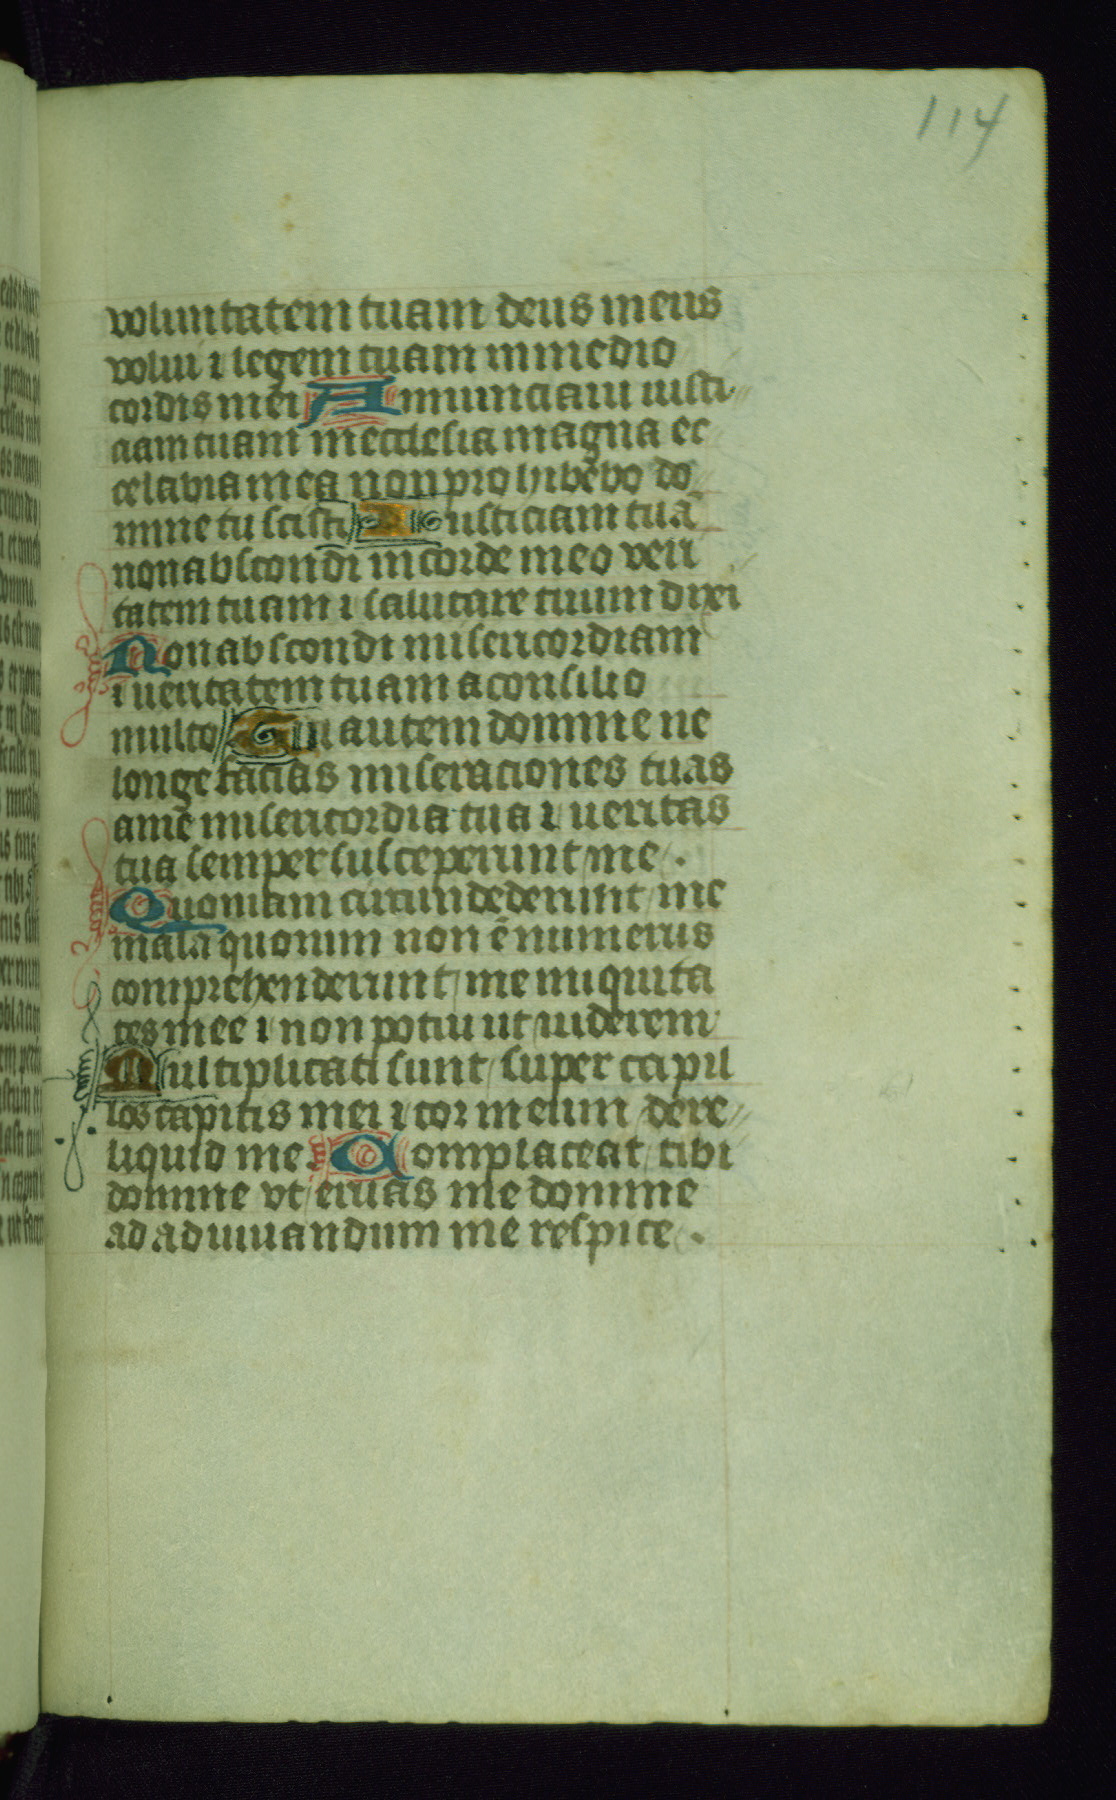 114
voluntatem tuam deus meus
volui ⁊ legem tuam in medio
cordis mei Annunciaui iusti
ciam tuam in ecclesia magna ec
ce labia mea non prohibebo do
mine tu scisti Iusticiam tuā
non abscondi in corde meo veri
tatem tuam ⁊ salutare tuum dixi
Non abscondi misericordiam
⁊ ueritatem tuam a consilio
multo Tu autem domine ne
longe facias miseraciones tuas
a me misericordia tua ⁊ ueritas
tua semper susceperunt me .
Quoniam circumdederunt me
mala quorum non ē numerus
comprehenderunt me iniquita
tes mee ⁊ non potui ut uiderem
Multiplicati sunt super capil
los capitis mei ⁊ cor meum dere
liquid me . Complaceat tibi
domine vt eruas me domine
ad adiuuandum me respice .